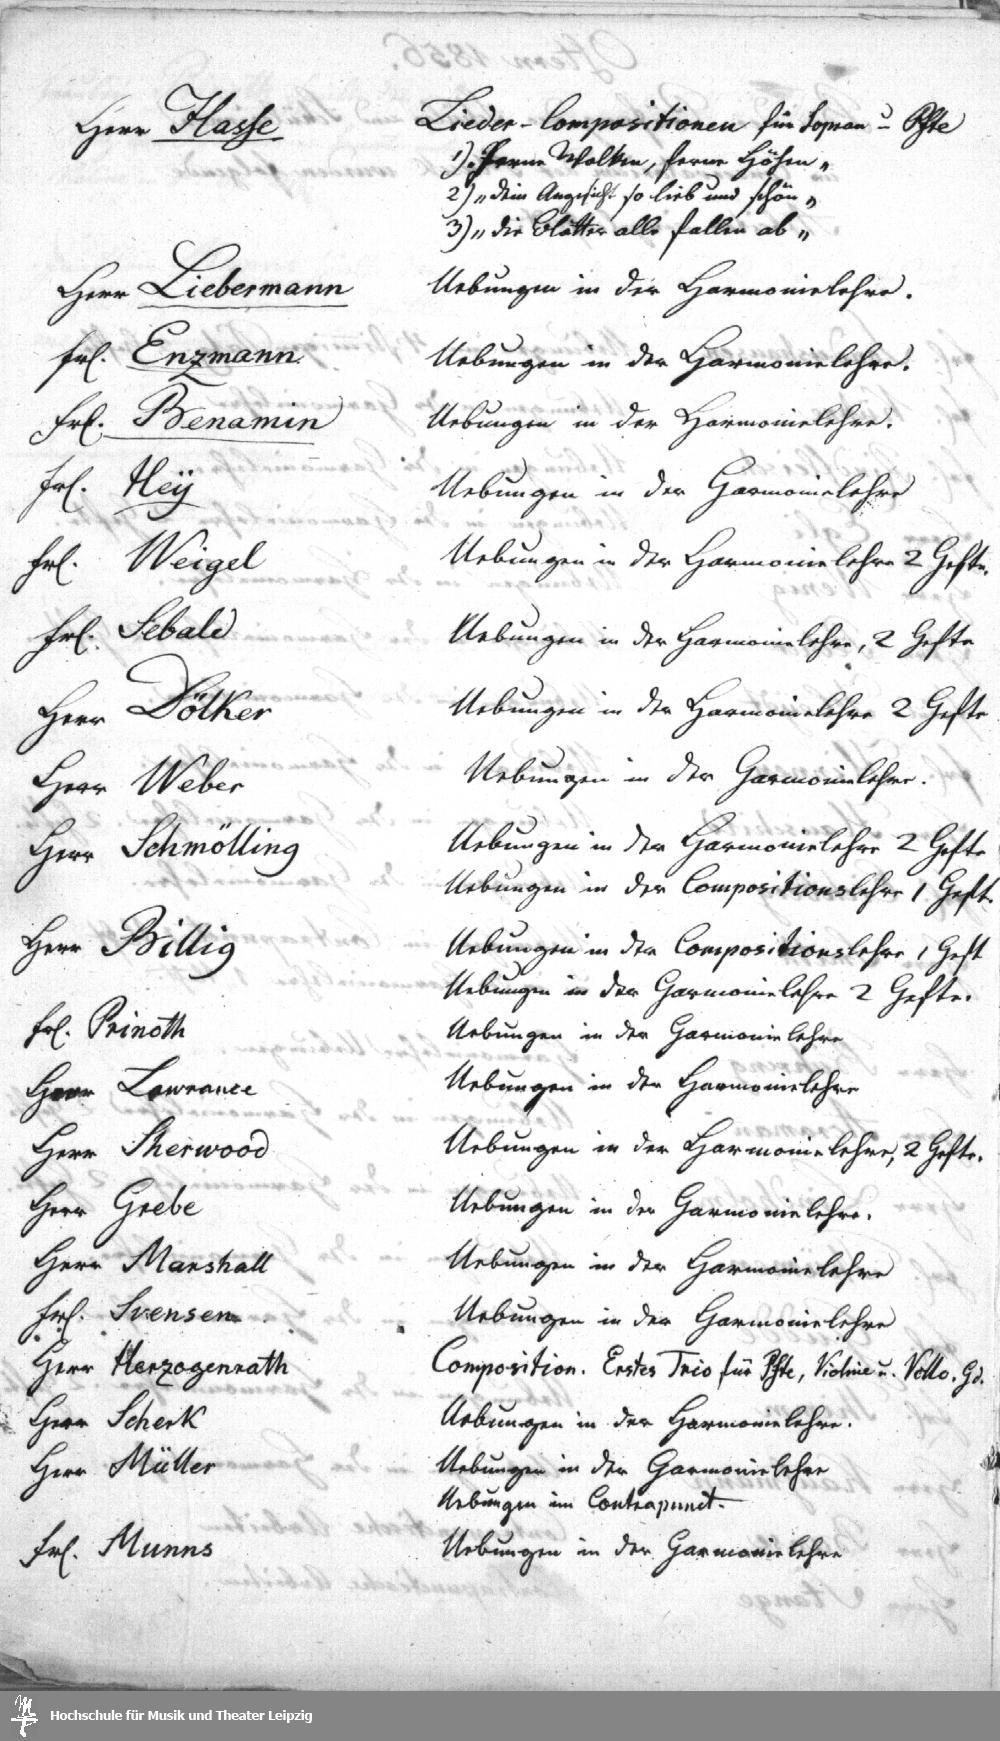 Herr Hasse Lieder-Compositionen für Sopran u. Pfte
1) „Ferne Wolken, ferne Höhen„
2) „dein Angesicht so lieb und schön„
3) „die Blätter alle fallen ab„
Herr Liebermann Uebungen in der Harmonielehre.
Frl. Enzmann Uebungen in der Harmonielehre.
Frl. Benamin Uebungen in der Harmonielehre.
Frl. Hey Uebungen in der Harmonielehre
Frl. Weigel Uebungen in der Harmonielehre 2 Hefte.
Frl. Sebald Uebungen in der Harmonielehre, 2 Hefte
Herr Dölker Uebungen in der Harmonielehre 2 Hefte
Herr Weber Uebungen in der Harmonielehre.
Herr Schmölling Uebungen in der Harmonielehre 2 Hefte
Uebungen in der Compositionslehre 1 Heft.
Herr Billig Uebungen in der Compositionslehre 1 Heft
Uebungen in der Harmonielehre 2 Hefte.
Frl. Prinoth Uebungen in der Harmonielehre
Herr Lawrance Uebungen in der Harmonielehre
Herr Sherwood Uebungen in der Harmonielehre, 2 Hefte.
Herr Grebe Uebungen in der Harmonielehre.
Herr Marshall Uebungen in der Harmonielehre
Frl. Svensen Uebungen in der Harmonielehre
Herr Herzogenrath Composition. Erstes Trio für Pfte, Violine u. Vcllo. Gd.
Herr Scherk Uebungen in der Harmonielehre.
Herr Müller Uebungen in der Harmonielehre
Uebungen im Contrapunct.
Frl. Munns Uebungen in der Harmonielehre
Hochschule für Musik und Theater Leipzig